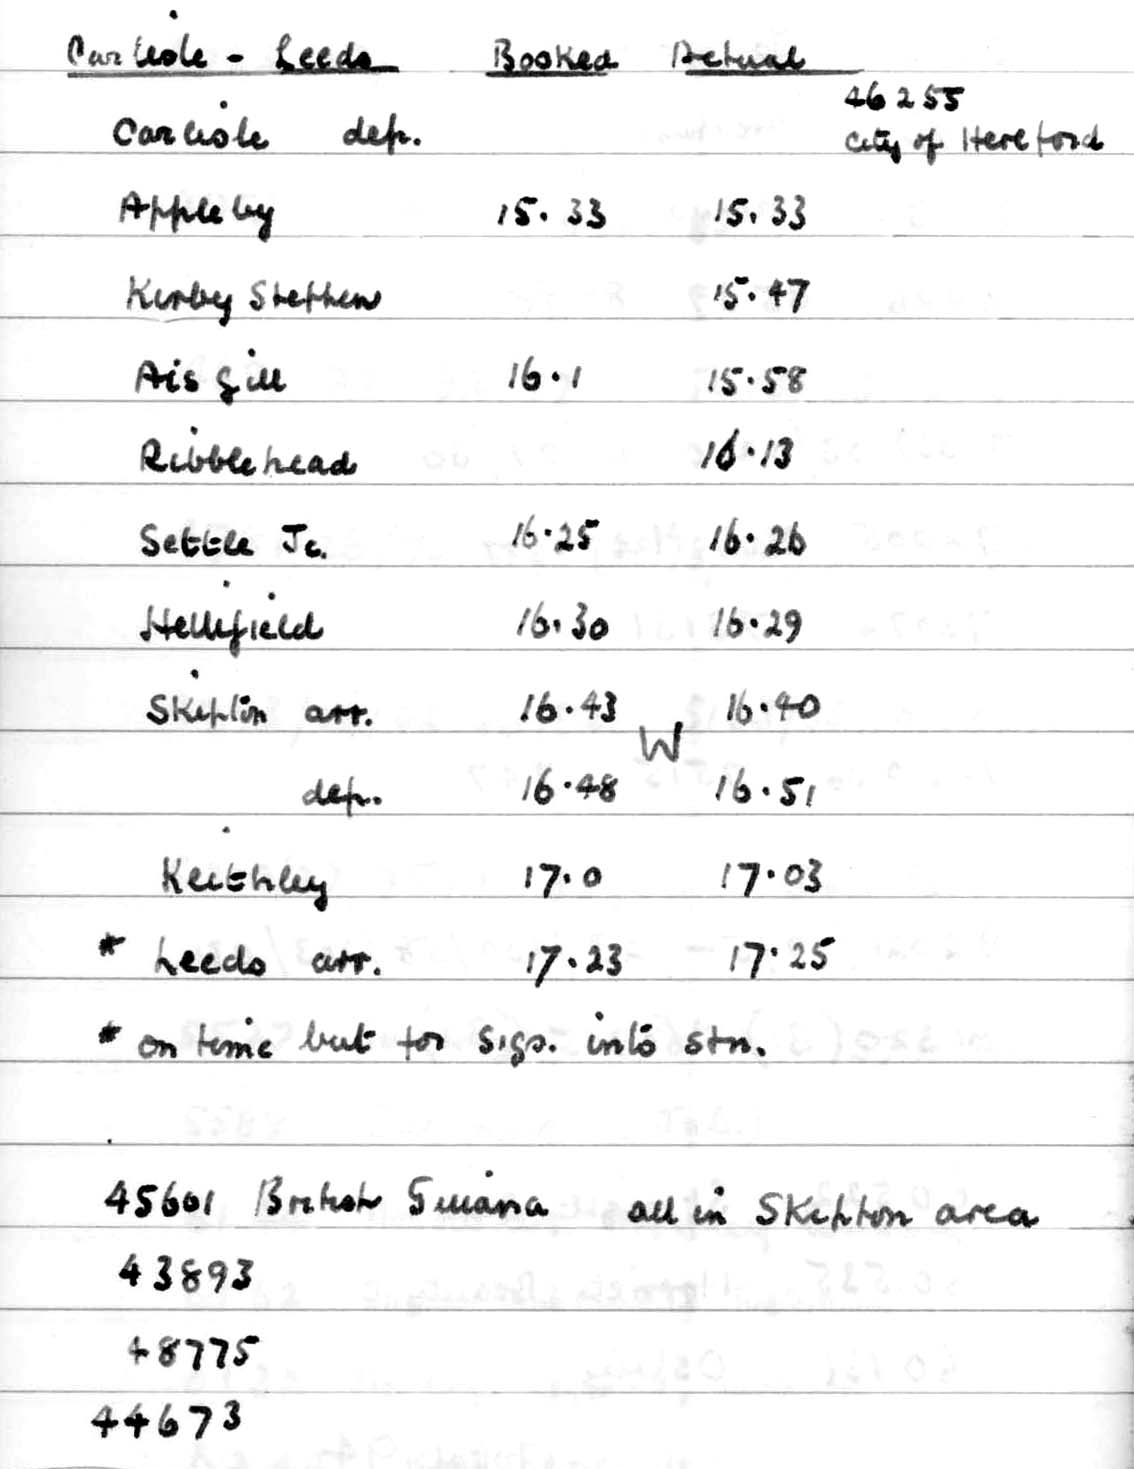 Carlisle - Leeds Booked Actual
46255
Carlisle dep. City of Hereford
Appleby 15.33 15.33
Kirby Stephen 15.47
Ais Gill 16.1 15.58
Ribblehead 16.13
Settle Jc. 16.25 16.26
Hellifield 16.30 16.29
Skipton arr. 16.43 16.40
W
dep. 16.48 16.51
Keithley 17.0 17.03
* Leeds arr. 17.23 17.25
* on time but for sigs. into stn.
45601 British Guiana all in Skipton area
43893
48775
44673